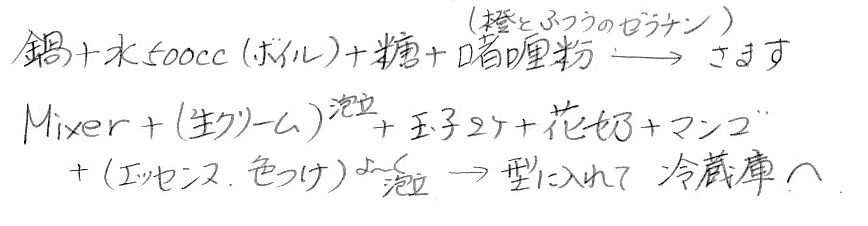 (橙とふつうのゼラチン)
鍋+水500cc(ボイル)+糖+啫喱粉 → さます
Mixer+(生クリーム)泡立+玉子2ケ+花奶+マンゴ
+(エッセンス.色つけ)よ〜く泡立 → 型に入れて 冷蔵庫へ